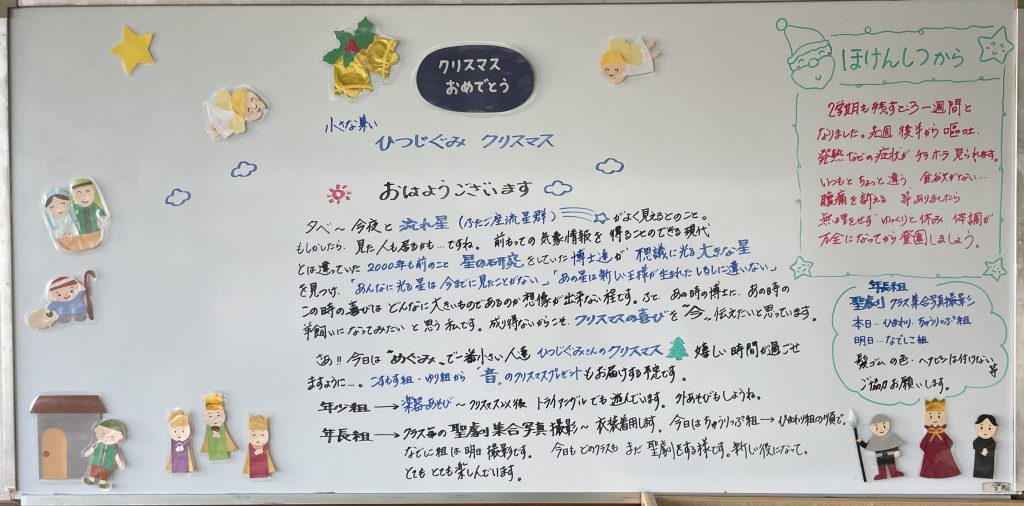 クリスマス
おめでとう
小さな集い
ひつじぐみ クリスマス
おはようございます
夕べ～今夜と 流れ星 (ふたご座流星群) がよく見えるとのこと。
もしかしたら、見た人も居るかも…ですね。前もっての気象情報を得ることのできる現代
とは違っていた 2000年も前のこと 星の研究をしていた博士達が 不思議に光る大きな星
を見つけ、「あんなに光る星は今までに見たことがない」「あの星は新しい王様が生まれたしるしに違いない」
この時の喜びは どんなに大きいものであるのか想像が出来ない程です。さて、あの時の博士に、あの時の
羊飼いになってみたい と思う私です。成り得ないからこそ、クリスマスの喜びを "今" 伝えたいと思っています。
さあ!! 今日は "めぐみ" で一番小さい人達 ひつじぐみさんのクリスマス 嬉しい時間が過ごせ
ますように…。こすもす組・ゆり組から "音" のクリスマスプレゼントもお届けする予定です。
年少組→楽器あそび～クリスマス以後 トライアングルでも遊んでいます。外あそびもしようね。
年長組→クラス毎の聖劇集合写真撮影～衣装着用します。今日はちゅうりっぷ組→ひまわり組の順で。
なでしこ組は明日撮影です。 今日もどのクラスも まだ聖劇をする様です。新しい役になって。
とても とても楽しんでいます。
ほけんしつから
2学期も残すところ一週間と
なりました。先週後半から嘔吐、
発熱などの症状がチラホラ見られます。
いつもとちょっと違う 食欲がない…
腹痛を訴える 等ありましたら
無理をせず ゆっくりと休み、体調が
万全になってから登園しましょう。
年長組
聖劇 クラス集合写真撮影
本日…ひまわり、ちゅうりっぷ組
明日…なでしこ組
髪ゴムの色・ヘアピンは付けない 等
ご協力お願いします。